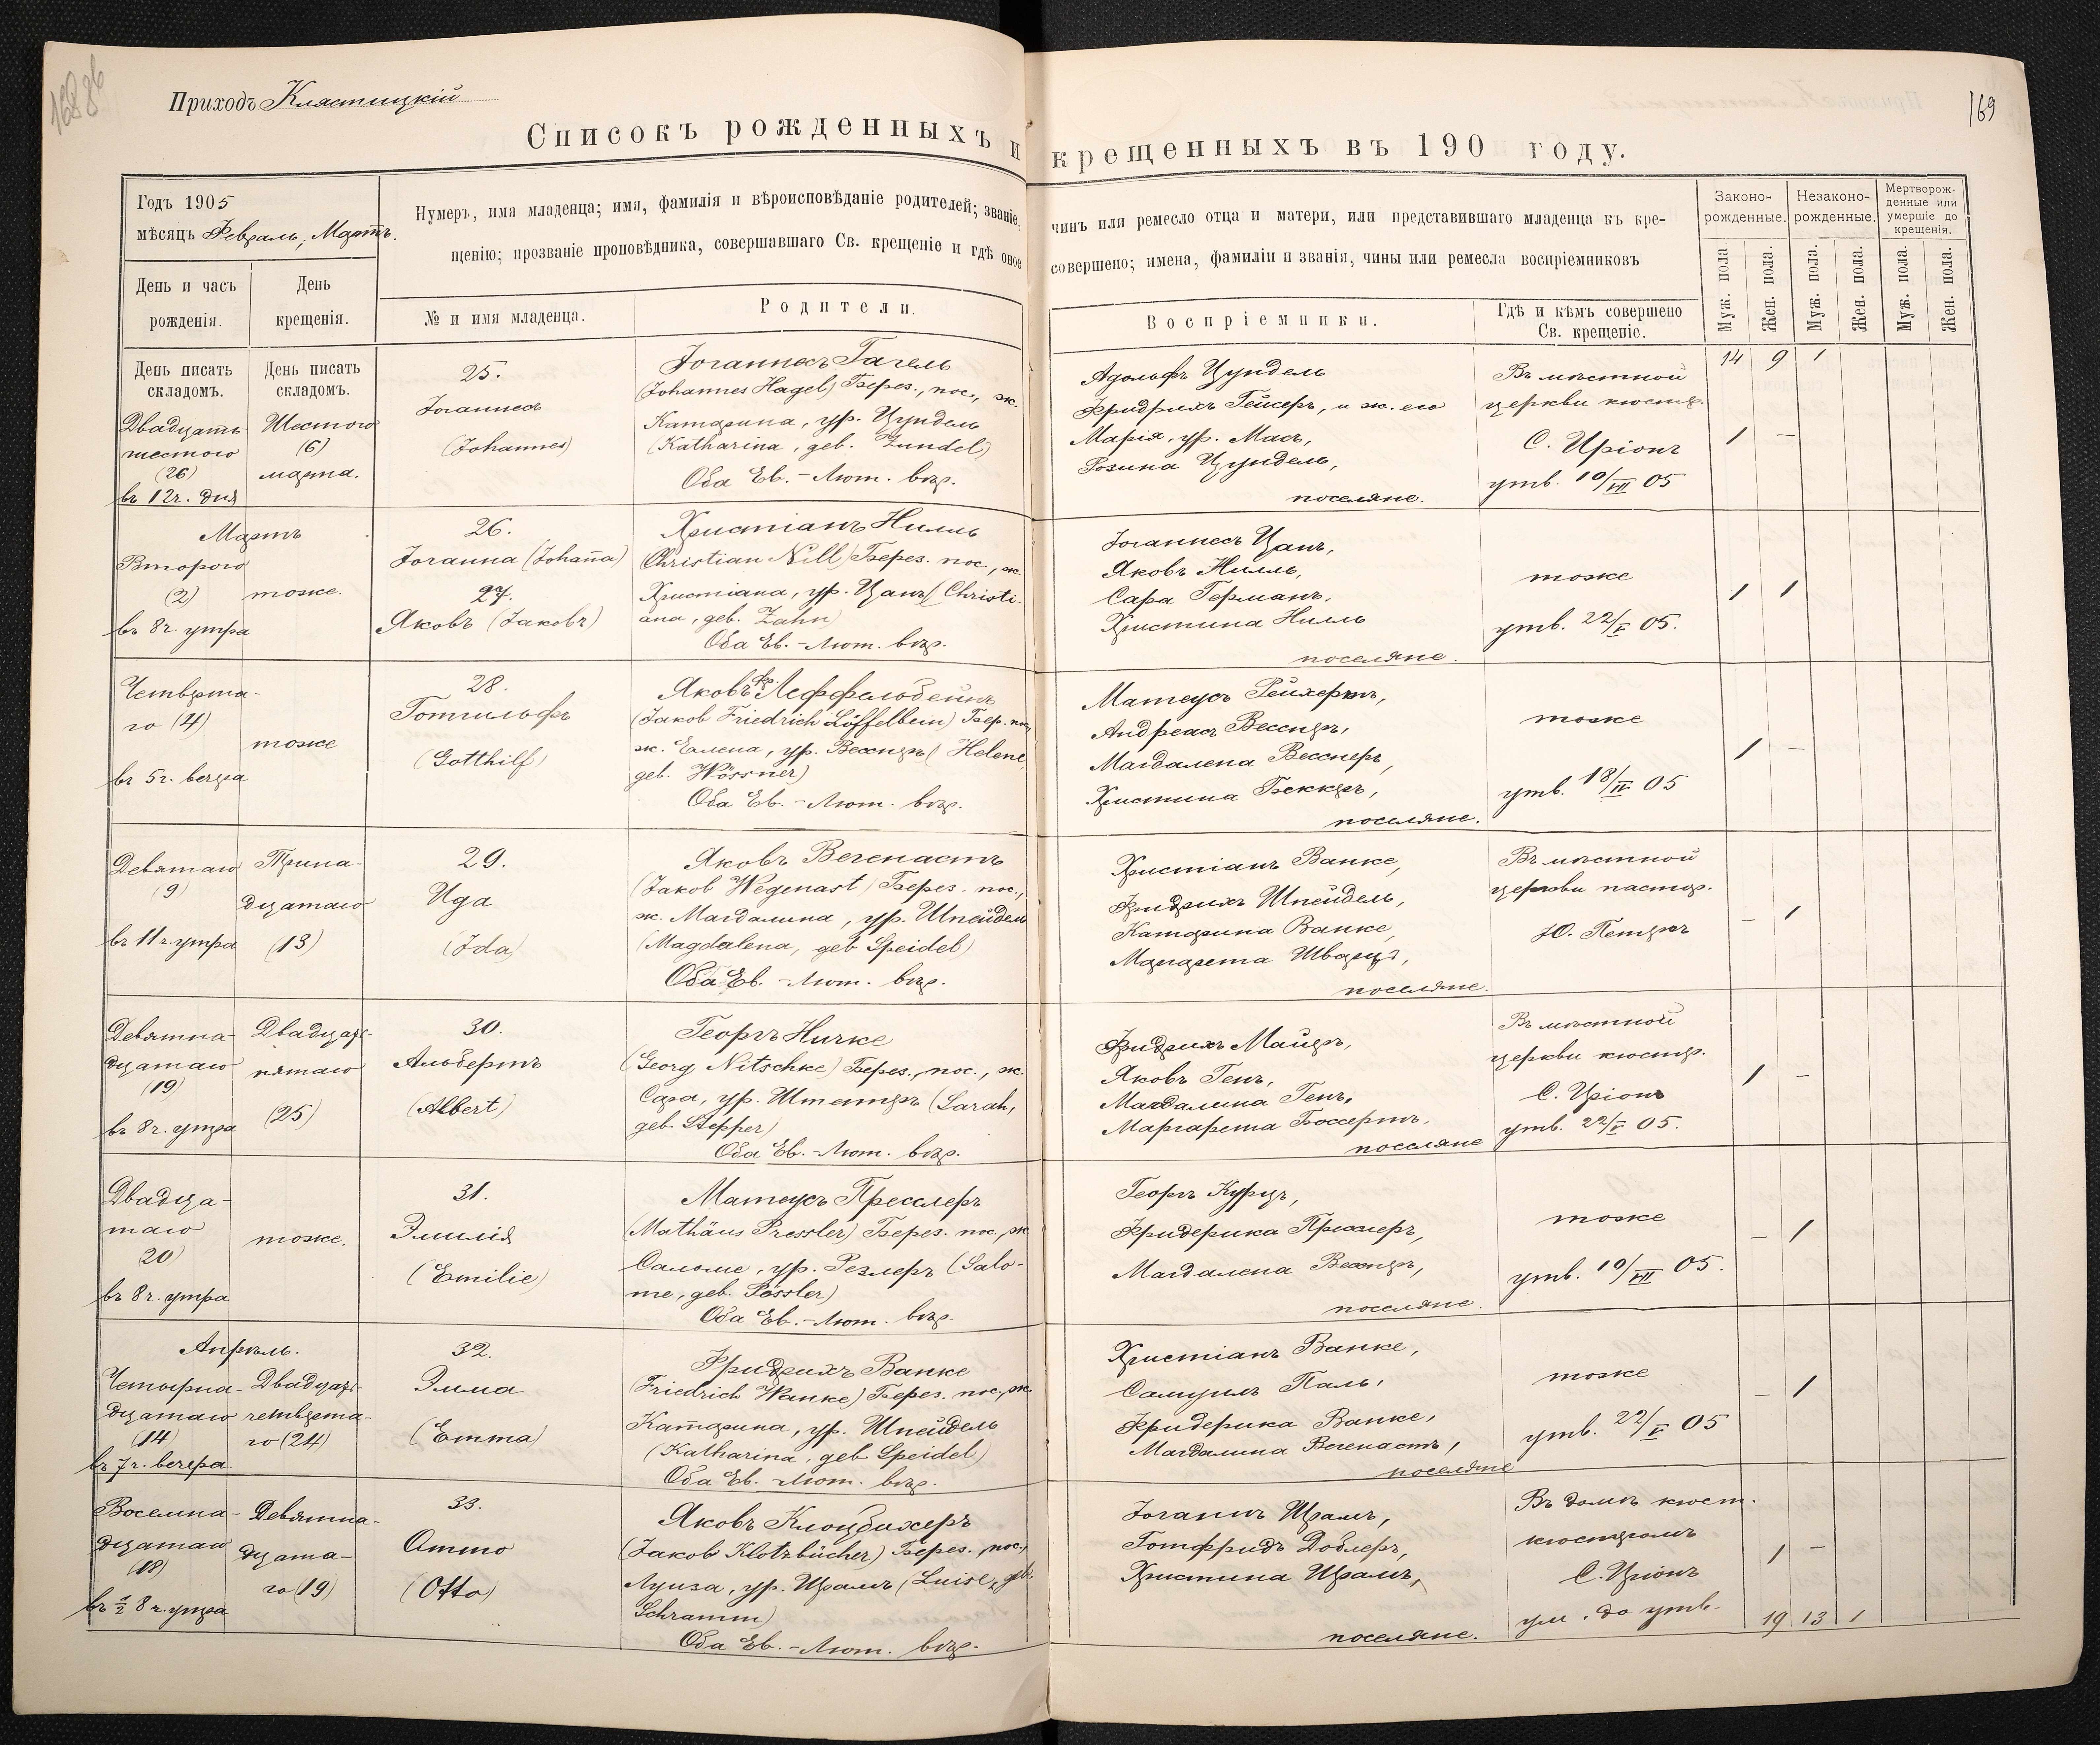 168 об
Приходъ Кластицкій
169
Списокъ рожденныхъ и крещенныхъ въ 190 году.
Годъ 1905
мѣсяцъ Февраль, Мартъ.
Нумеръ, имя младенца; имя, фамилія и вѣроисповѣданіе родителей; званіе, чинъ или ремесло отца и матери, или представившаго младенца къ кре-
щенію; прозваніе проповѣдника, совершавшаго Св. крещеніе и гдѣ оное совершено; имена, фамиліи и званія, чины или ремесла воспріемниковъ
Законо-
рожденные.
Незаконо-
рожденные.
Мертворож-
денные или
умершіе до
крещенія.
День и часъ
рожденія.
День
крещенія.
№ и имя младенца.
Родители.
Воспріемники.
Гдѣ и кѣмъ совершено
Св. крещеніе.
Муж. пола
Жен. пола.
Муж. пола.
Жен. пола.
Муж. пола.
Жен. пола.
День писать
складомъ.
День писать
складомъ.
14 9 1
Двадцать
шестого
(26)
въ 12 ч. дня
Шестого
(6)
марта.
25.
Іоганнесъ
(Johannes)
Іоганнесъ Гагель
(Johannes Hagel) Берез., пос., ж.
Катарина, ур. Цундель
(Katharina, geb. Zundel)
Оба Ев.-Лют. вѣр.
Адольфъ Цундель
Фридрихъ Гейсеръ, и ж. его
Марія, ур. Масъ,
Розина Цундель,
поселяне.
Въ мѣстной
церкви кюстер.
С. Иріонъ
утв. 10/VII 05
1 –
Мартъ
Второго
(2)
въ 8 ч. утра
тоже.
26.
Іоганна (Johaña)
27.
Яковъ (Jakobъ)
Христіанъ Нилль
(Christian Nill) Берез. пос., ж.
Христіана, ур. Цанъ (Christi-
ana, geb. Zahn)
Оба Ев.-Лют. вѣр.
Іоганнесъ Цанъ,
Яковъ Нилль,
Сара Германъ,
Христина Нилль
поселяне.
тоже
утв. 22/V 05.
1 1
Четверта-
го (4)
въ 5 ч. вечера
тоже
28.
Готтильфъ
(Gotthilf)
Яковъ Фр. Леффельбейнъ
(Jakob Friedrich Löffelbein) Бер. пос.,
ж. Елена, ур. Весснеръ (Helene,
geb. Wössner)
Оба Ев.-Лют. вѣр.
Матеусъ Рейхертъ,
Андреасъ Весснеръ,
Магдалена Весснеръ,
Христина Беккеръ,
поселяне.
тоже
утв. 18/IV 05
1 –
Девятаго
(9)
въ 11 ч. утра
Трина-
дцатаго
(13)
29.
Ида
(Ida)
Яковъ Вегенастъ
(Jakob Wegenast) Берез. пос.,
ж. Магдалина, ур. Шпейдель
(Magdalena, geb. Speidel)
Оба Ев.-Лют. вѣр.
Христіанъ Ванке,
Фридрихъ Шпейдель,
Катарина Ванке,
Маргарета Шварцъ,
поселяне.
Въ мѣстной
церкви пастор.
Ю. Петерсъ
– 1
Девятна-
дцатаго
(19)
въ 8 ч. утра
Двадцать
пятаго
(25)
30.
Альбертъ
(Albert)
Георгъ Ничке
(Georg Nitschke) Берез., пос., ж.
Сара, ур. Штепперъ (Sarah,
geb. Stepper)
Оба Ев.-Лют. вѣр.
Фридрихъ Майеръ,
Яковъ Генъ,
Магдалина Генъ,
Маргарета Боссертъ,
поселяне
Въ мѣстной
церкви кюстер.
С. Иріонъ
утв. 22/V 05.
1 –
Двадца-
таго
(20)
въ 8 ч. утра
тоже.
31.
Эмилія
(Emilie)
Матеусъ Пресслеръ
(Mathäus Pressler) Берез. пос., ж.
Саломе, ур. Резлеръ (Salo-
me, geb. Rössler)
Оба Ев.-Лют. вѣр.
Георгъ Курцъ,
Фридерика Пресслеръ,
Магдалена Весснеръ,
поселяне.
тоже
утв. 10/VII 05.
– 1
Апрѣль.
Четырна-
дцатаго
(14)
въ 7 ч. вечера.
Двадцать
четверта-
го (24)
32.
Эмма
(Emma)
Фридрихъ Ванке
(Friedrich Wanke) Берез. пос., ж.
Катарина, ур. Шпейдель
(Katharina, geb. Speidel)
Оба Ев.-Лют. вѣр.
Христіанъ Ванке,
Самуилъ Паль,
Фридерика Ванке,
Магдалина Вегенастъ,
поселяне
тоже
утв. 22/V 05
– 1
Восемна-
дцатаго
(18)
въ ½ 8 ч. утра
Девятна-
дцата-
го (19)
33.
Отто
(Otto)
Яковъ Клоцбихеръ
(Jakob Klotzbücher) Берез. пос.,
Луиза, ур. Шрамъ (Luise, geb.
Schramm)
Оба Ев.-Лют. вѣр.
Іоганнъ Шрамъ,
Готфридъ Доблеръ,
Христина Шрамъ,
поселяне.
Въ домѣ кюст.
кюстеромъ
С. Иріонъ
ум. до утв.
1 –
19 13 1